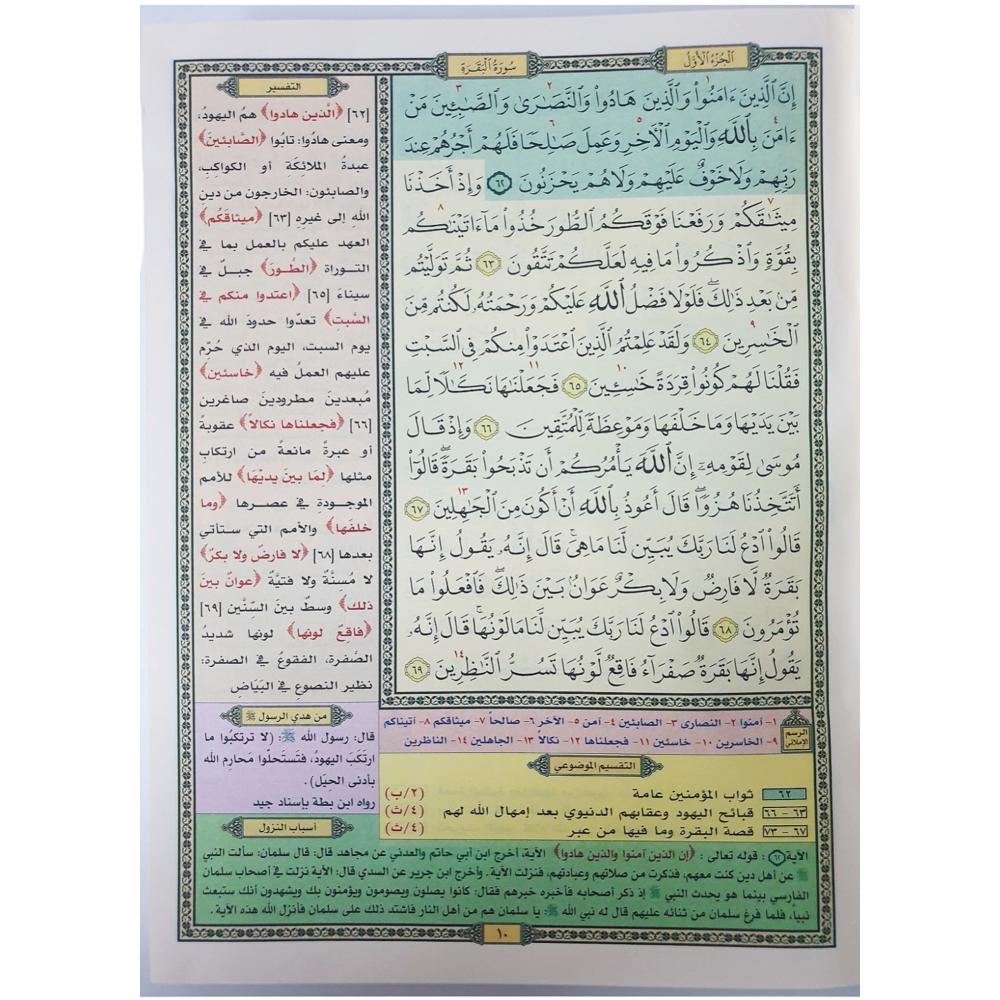 الجزء الأول
سورة البقرة
إِنَّ ٱلَّذِينَ ءَامَنُوا۟ وَٱلَّذِينَ هَادُوا۟ وَٱلنَّصَٰرَىٰ وَٱلصَّٰبِـِٔينَ مَنْ
ءَامَنَ بِٱللَّهِ وَٱلْيَوْمِ ٱلْأَخِرِ وَعَمِلَ صَٰلِحًا فَلَهُمْ أَجْرُهُمْ عِندَ
رَبِّهِمْ وَلَا خَوْفٌ عَلَيْهِمْ وَلَا هُمْ يَحْزَنُونَ ٦٢ وَإِذْ أَخَذْنَا
مِيثَٰقَكُمْ وَرَفَعْنَا فَوْقَكُمُ ٱلطُّورَ خُذُوا۟ مَآ ءَاتَيْنَٰكُم
بِقُوَّةٍ وَٱذْكُرُوا۟ مَا فِيهِ لَعَلَّكُمْ تَتَّقُونَ ٦٣ ثُمَّ تَوَلَّيْتُم
مِّنۢ بَعْدِ ذَٰلِكَ ۖ فَلَوْلَا فَضْلُ ٱللَّهِ عَلَيْكُمْ وَرَحْمَتُهُۥ لَكُنتُم مِّنَ
ٱلْخَٰسِرِينَ ٦٤ وَلَقَدْ عَلِمْتُمُ ٱلَّذِينَ ٱعْتَدَوْا۟ مِنكُمْ فِى ٱلسَّبْتِ
فَقُلْنَا لَهُمْ كُونُوا۟ قِرَدَةً خَٰسِـِٔينَ ٦٥ فَجَعَلْنَٰهَا نَكَٰلًا لِّمَا
بَيْنَ يَدَيْهَا وَمَا خَلْفَهَا وَمَوْعِظَةً لِّلْمُتَّقِينَ ٦٦ وَإِذْ قَالَ
مُوسَىٰ لِقَوْمِهِۦٓ إِنَّ ٱللَّهَ يَأْمُرُكُمْ أَن تَذْبَحُوا۟ بَقَرَةً ۖ قَالُوٓا۟
أَتَتَّخِذُنَا هُزُوًا ۖ قَالَ أَعُوذُ بِٱللَّهِ أَنْ أَكُونَ مِنَ ٱلْجَٰهِلِينَ ٦٧
قَالُوا۟ ٱدْعُ لَنَا رَبَّكَ يُبَيِّن لَّنَا مَا هِىَ ۚ قَالَ إِنَّهُۥ يَقُولُ إِنَّهَا
بَقَرَةٌ لَّا فَارِضٌ وَلَا بِكْرٌ عَوَانٌۢ بَيْنَ ذَٰلِكَ ۖ فَٱفْعَلُوا۟ مَا
تُؤْمَرُونَ ٦٨ قَالُوا۟ ٱدْعُ لَنَا رَبَّكَ يُبَيِّن لَّنَا مَا لَوْنُهَا ۚ قَالَ إِنَّهُۥ
يَقُولُ إِنَّهَا بَقَرَةٌ صَفْرَآءُ فَاقِعٌ لَّوْنُهَا تَسُرُّ ٱلنَّٰظِرِينَ ٦٩
التفسير
[٦٢] ﴿الَّذين هادوا﴾ همُ اليهودُ،
ومعنى هادُوا: تابُوا ﴿الصَّابئينَ﴾
عبدةُ الملائكَةِ أو الكواكبِ،
والصابئون: الخارجون من دينِ
اللهِ إلى غيرِهِ [٦٣] ﴿ميثاقَكُم﴾
العهد عليكم بالعملِ بما في
التوراة ﴿الطُّورَ﴾ جبلٌ في
سيناءَ [٦٥] ﴿اعتدوا منكم في
السَّبتِ﴾ تعدّوا حدودَ الله في
يوم السبت، اليوم الذي حُرّم
عليهم العملُ فيه ﴿خاسئين﴾
مُبعدينَ مطرودينَ صاغرين
[٦٦] ﴿فجعلناها نكالاً﴾ عقوبةً
أو عبرةً مانعةً من ارتكابِ
مثلها ﴿لِمَا بينَ يديْهَا﴾ للأممِ
الموجودةِ في عصرها ﴿وما
خلفَها﴾ والأمم التي ستأتي
بعدها [٦٨] ﴿لا فارضٌ ولا بكرٌ﴾
لا مُسنَّة ولا فتيَّة ﴿عوانٌ بينَ
ذلكَ﴾ وسطٌ بينَ السِّنَّين [٦٩]
﴿فاقعٌ لونها﴾ لونها شديدُ
الصُّفرة، الفقوعُ في الصفرة:
نظير النصوعِ في البَيَاضِ
من هدي الرسول ﷺ
قال: رسول الله ﷺ: (لا ترتكبُوا ما
ارتكَبَ اليهودُ، فتَستحلّوا مَحارِم الله
بأدنى الحِيَل).
رواه ابن بطة بإسناد جيد
الرسم الإملائي
١- آمنوا ٢- النصارى ٣- الصابئين ٤- آمن ٥- الآخر ٦- صالحاً ٧- ميثاقكم ٨- آتيناكم
٩- الخاسرين ١٠- خاسئين ١١- فجعلناها ١٢- نكالاً ١٣- الجاهلين ١٤- الناظرين
التقسيم الموضوعي
٦٢ ثواب المؤمنين عامة (٢/ب)
٦٣ - ٦٦ قبائح اليهود وعقابهم الدنيوي بعد إمهال الله لهم (٤/ث)
٦٧ - ٧٣ قصة البقرة وما فيها من عبر (٤/ث)
أسباب النزول
الآية ٦٢: قوله تعالى: ﴿إن الذين آمنوا والذين هادوا﴾ الآية، أخرج ابن أبي حاتم والعدني عن مجاهد قال: قال سلمان: سألت النبي
ﷺ عن أهل دين كنت معهم، فذكرت من صلاتهم وعبادتهم، فنزلت الآية. وأخرج ابن جرير عن السدي قال: الآية نزلت في أصحاب سلمان
الفارسي بينما هو يحدث النبي ﷺ إذ ذكر أصحابه فأخبره خبرهم فقال: كانوا يصلون ويصومون ويؤمنون بك ويشهدون أنك ستبعث
نبياً، فلما فرغ سلمان من ثنائه عليهم قال له نبي الله ﷺ: يا سلمان هم من أهل النار فاشتد ذلك على سلمان فأنزل الله هذه الآية.
١٠